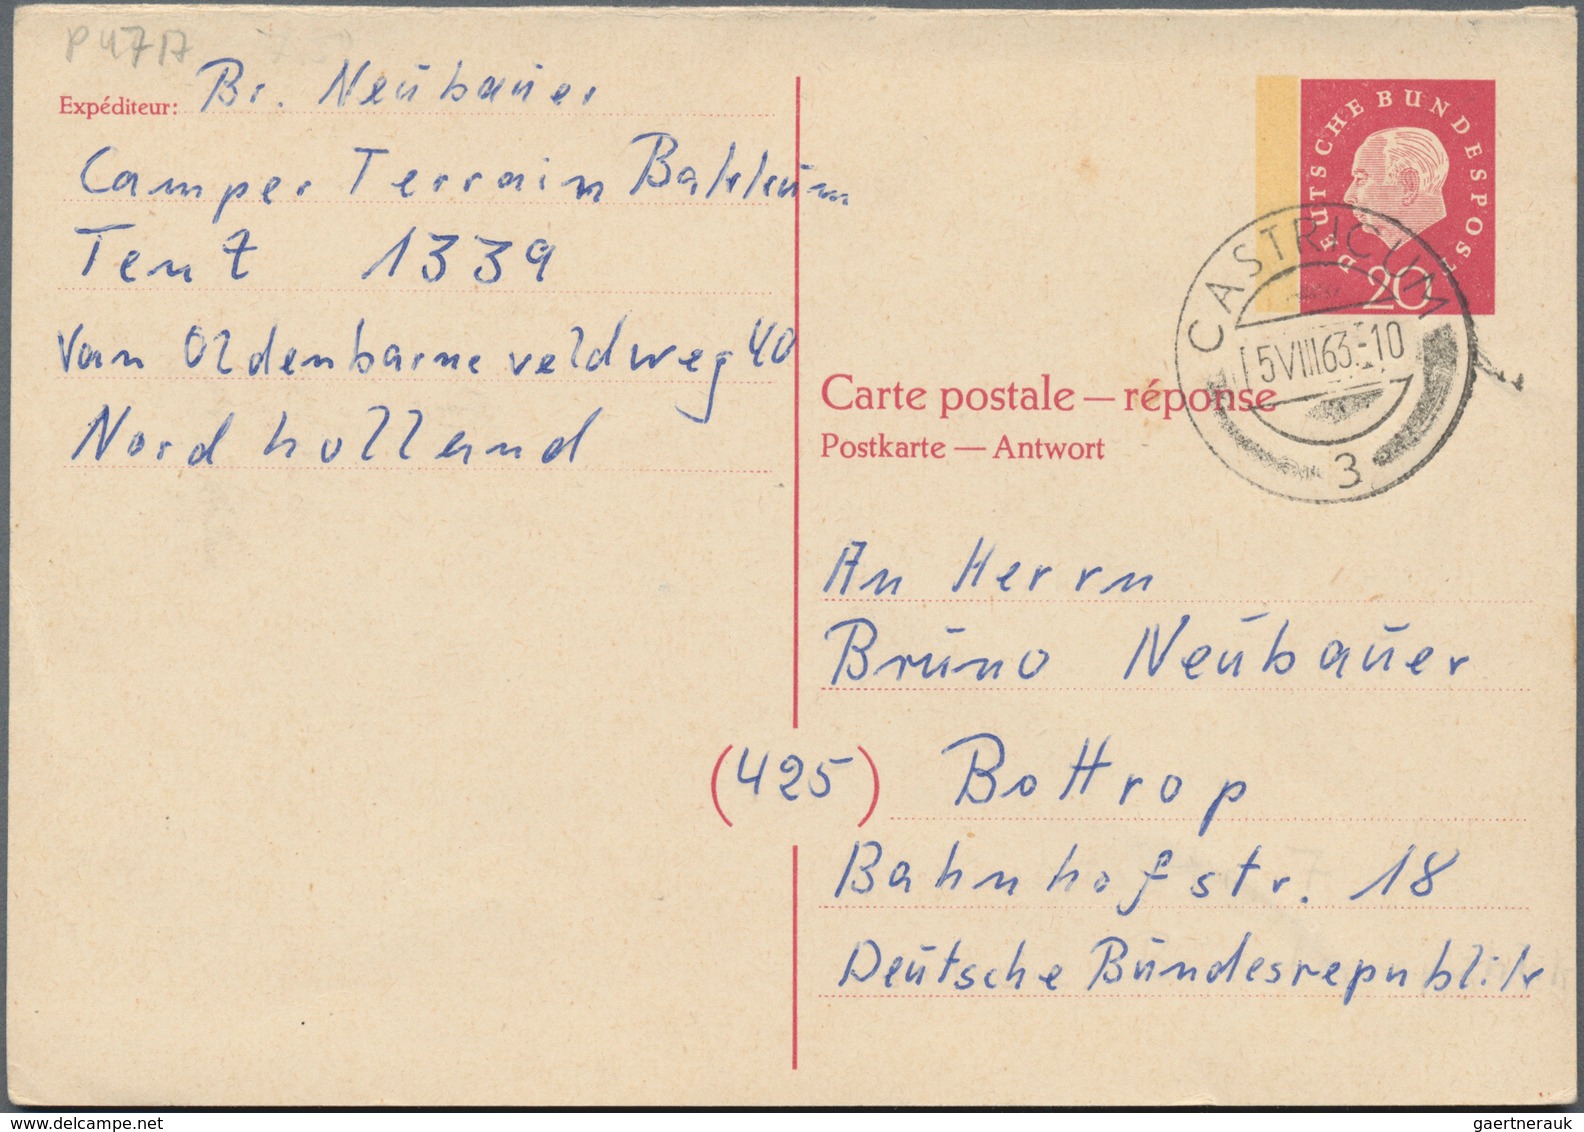 P 47 A
Expéditeur: Br. Neubauer
Camper Terrain Bakkum
Tent 1339
Van Oldenbarneveldweg 40
Nord holland
DEUTSCHE BUNDESPOST
20
CASTRICUM
5 VIII 63.-10
3
Carte postale — réponse
Postkarte — Antwort
An Herrn
Bruno Neubauer
(425) Bottrop
Bahnhofstr. 18
Deutsche Bundesrepublik
gaertnerauk @ delcampe.net